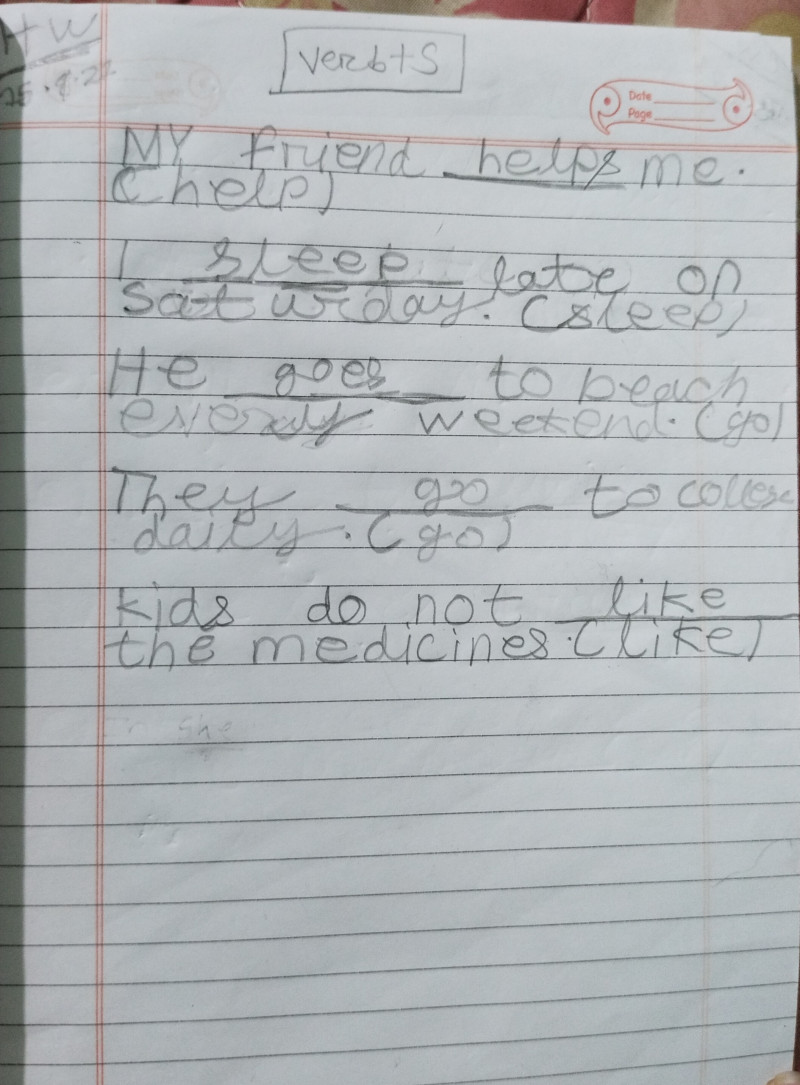 HW
Verb+S
Date
Page
My friend helps me.
(help)
I sleep late on
saturday. (sleep)
He goes to beach
every weekend. (go)
They go to
daily. (go)
kids do not like
the medicines. (like)
she